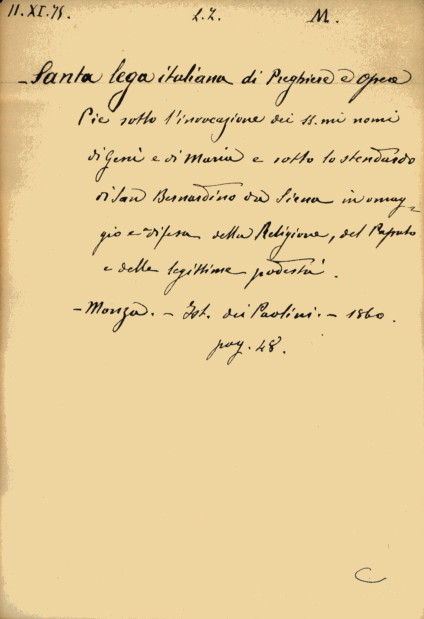 11. XI. 75. L.2. M.
- Santa lega italiana di Preghiere e Opere
Pie sotto l'invocazione dei SS.mi nomi
di Gesù e di Maria e sotto lo stendardo
di San Bernardino da Siena in omag-
gio e difesa della Religione, del Papato
e delle legittime podestà.
- Monza. - Ist. dei Paolini. - 1860.
pag. 48.
C